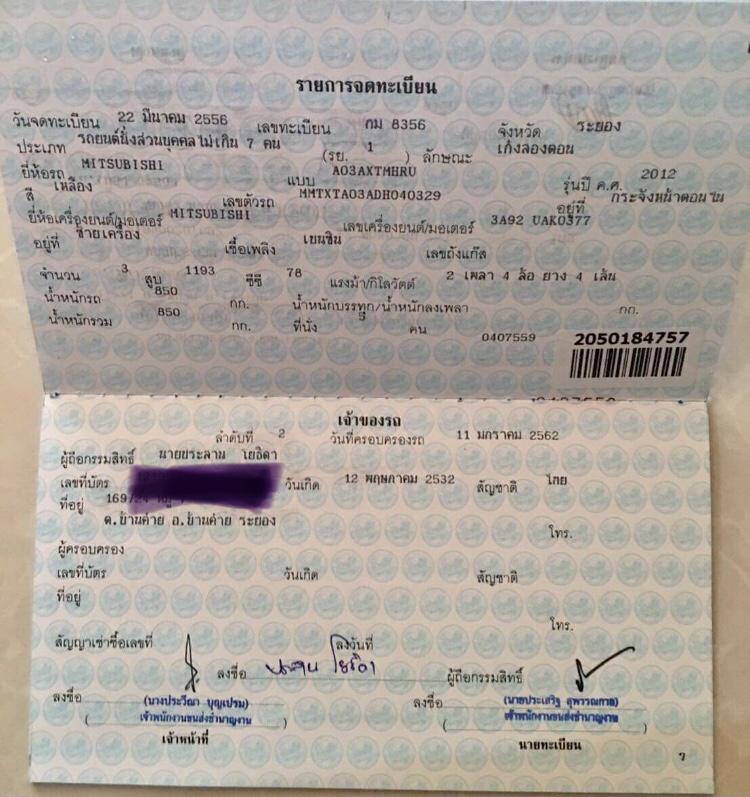 รายการจดทะเบียน
วันจดทะเบียน 22 มีนาคม 2556 เลขทะเบียน กม 8356 จังหวัด ระยอง
ประเภท รถยนต์นั่งส่วนบุคคลไม่เกิน 7 คน (รย. 1 ) ลักษณะ เก๋งสองตอน
ยี่ห้อรถ MITSUBISHI แบบ A03AXTMHRU รุ่นปี ค.ศ. 2012
สี เหลือง เลขตัวรถ MMTXTA03ADH040329 อยู่ที่ กระจังหน้าตอนใน
ยี่ห้อเครื่องยนต์/มอเตอร์ MITSUBISHI เลขเครื่องยนต์/มอเตอร์ 3A92 UAK0377
อยู่ที่ ซ้ายเครื่อง เชื้อเพลิง เบนซิน เลขถังแก๊ส
จำนวน 3 สูบ 1193 ซีซี 78 แรงม้า/กิโลวัตต์ 2 เพลา 4 ล้อ ยาง 4 เส้น
น้ำหนักรถ 850 กก. น้ำหนักบรรทุก/น้ำหนักลงเพลา กก.
น้ำหนักรวม 850 กก. ที่นั่ง 5 คน
0407559 2050184757
เจ้าของรถ
ลำดับที่ 2 วันที่ครอบครองรถ 11 มกราคม 2562
ผู้ถือกรรมสิทธิ์ นายประสาน โยธิดา
เลขที่บัตร วันเกิด 12 พฤษภาคม 2532 สัญชาติ ไทย
ที่อยู่ 169/
ต.บ้านค่าย อ.บ้านค่าย ระยอง โทร.
ผู้ครอบครอง
เลขที่บัตร วันเกิด สัญชาติ
ที่อยู่
โทร.
สัญญาเช่าซื้อเลขที่ ลงวันที่
ลงชื่อ ประสาน โยธิดา ผู้ถือกรรมสิทธิ์
ลงชื่อ (นางประวีณา บุญเปรม) ลงชื่อ (นายประเสริฐ สุพรรณกาย)
( เจ้าพนักงานขนส่งชำนาญงาน ) ( เจ้าพนักงานขนส่งชำนาญงาน )
เจ้าหน้าที่ นายทะเบียน